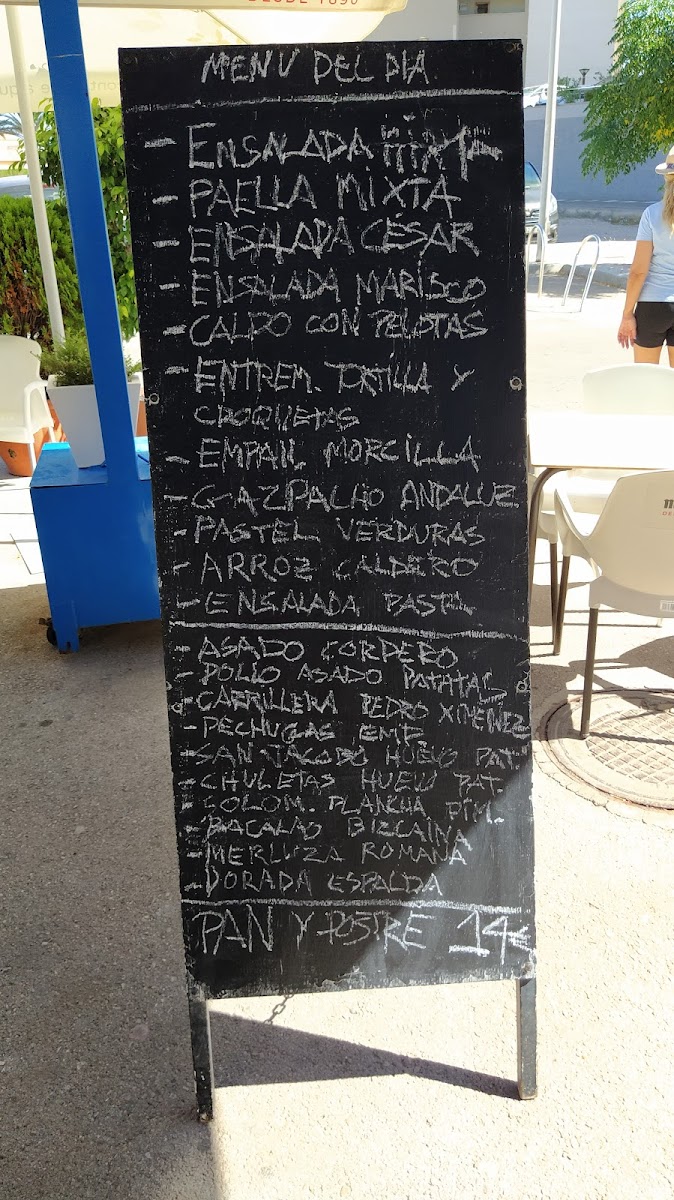 DESDE 1890
MENU DEL DIA
- ENSALADA MIXTA
- PAELLA MIXTA
- ENSALADA CÉSAR
- ENSALADA MARISCO
- CALDO CON PELOTAS
- ENTREM. TORTILLA Y
CROQUETAS
- EMPAN. MORCILLA
- GAZPACHO ANDALUZ
- PASTEL VERDURAS
- ARROZ CALDERO
- ENSALADA PASTA
- ASADO CORDERO
- POLLO ASADO PATATAS
- CARRILLERA PEDRO XIMENEZ
- PECHUGAS EMP
- SAN JACOBO HUEVO PAT.
- CHULETAS HUEVO PAT.
- SOLOM. PLANCHA PIM.
- BACALAO BIZCAINA
- MERLUZA ROMANA
- DORADA ESPALDA
PAN Y POSTRE 14€